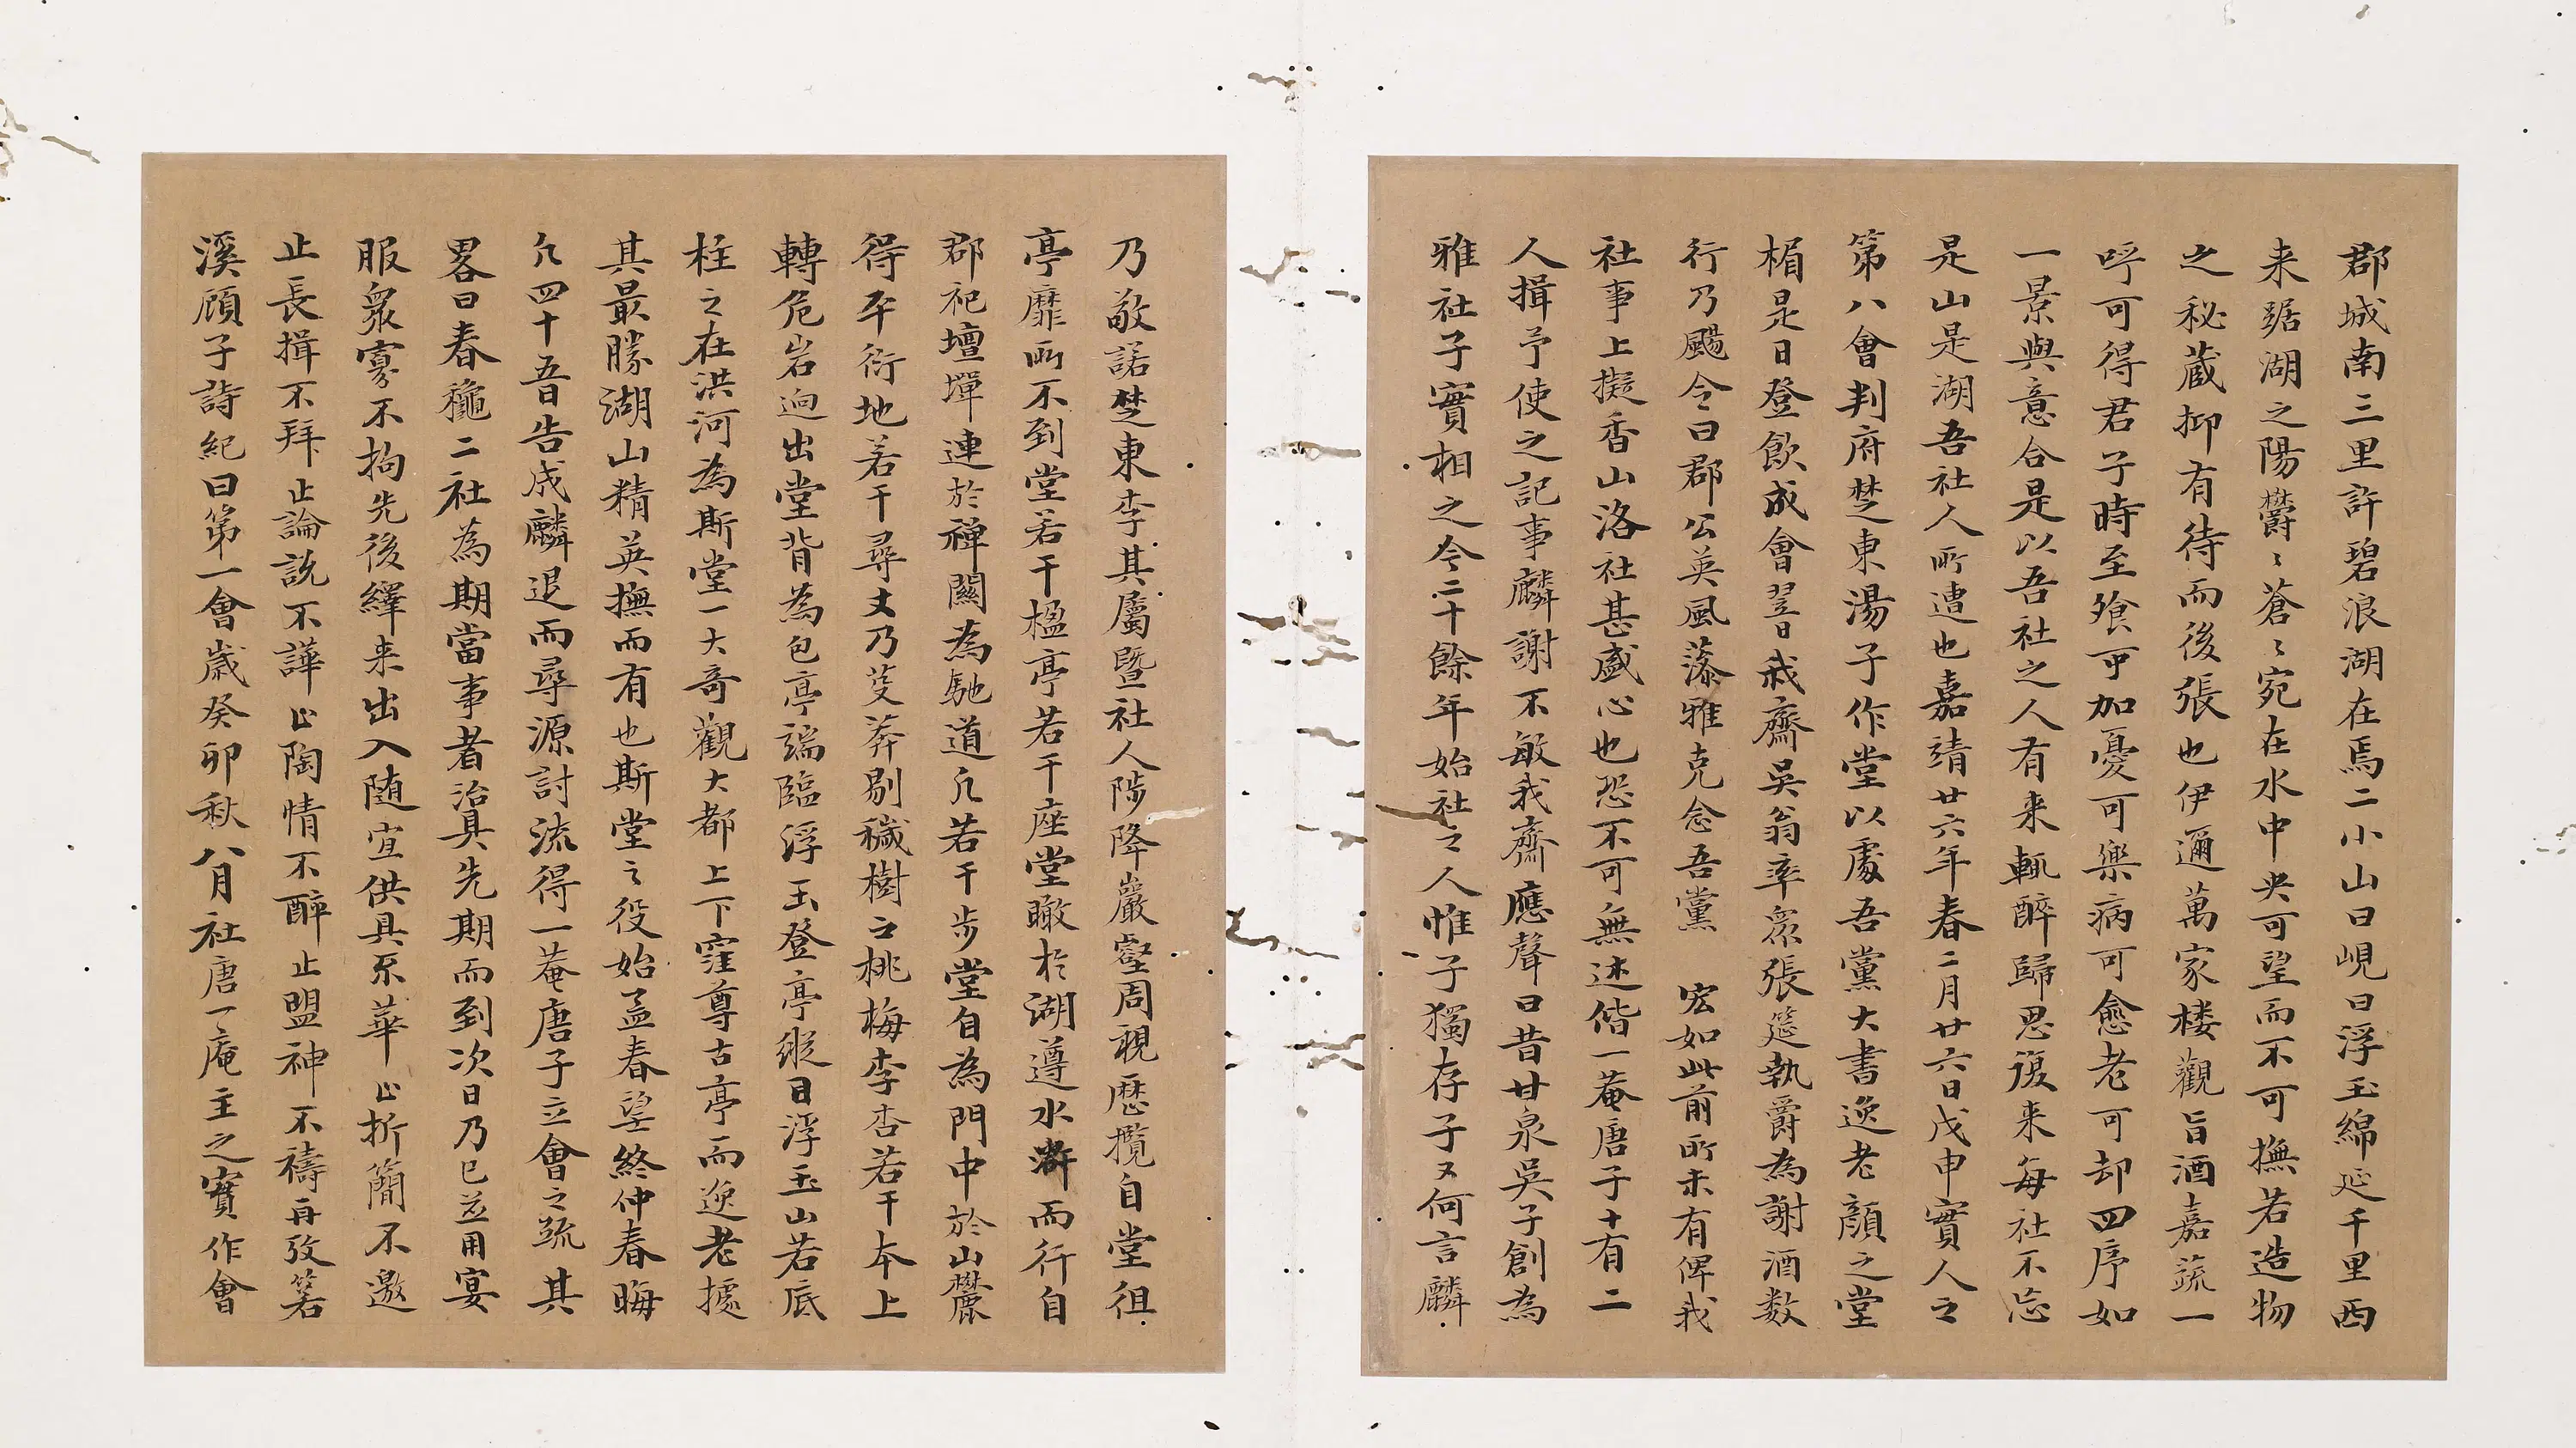 郡城南三里許碧浪湖在焉二小山曰峴曰浮玉綿延千里西
来踞湖之陽欝〻蒼〻宛在水中央可望而不可撫若造物
之秘蔵抑有待而後張也伊邇萬家楼觀旨酒嘉蔬一
呼可得君子時至飱可加憂可樂病可愈老可却四序如
一景與意合是以吾社之人有来輒醉歸思復来每社不忘
是山是湖吾社人所遭也嘉靖廿六年春二月廿六日戊申實人之
第八會判府楚東湯子作堂以處吾黨大書逸老顔之堂
楣是日登飲成會翌日我齋吳翁率眾張筵執爵為謝酒数
行乃颺令曰郡公英風藻雅克念吾黨 宏如此前所未有俾我
社事上擬香山洛社甚盛心也恐不可無述偕一菴唐子十有二
人揖予使之記事麟謝不敏我齋應聲曰昔甘泉吳子創為
雅社子實相之今二十餘年始社之人惟子獨存子又何言麟
乃敬諾楚東李其屬暨社人陟降巖壑周視歷攬自堂徂
亭靡所不到堂若干楹亭若干座堂瞰於湖遵水滸而行自
郡祀壇墠連於禅關為馳道凢若干步堂自為門中於山麓
得平衍地若干尋丈乃芟莽剔穢樹之桃梅李杏若干本上
轉危岩逈出堂背為包亭端臨浮玉登亭縱目浮玉山若底
柱之在洪河為斯堂一大奇觀大都上下窪尊古亭而逸老據
其最勝湖山精英撫而有也斯堂之役始孟春望終仲春晦
凢四十吾日告成麟退而尋源討流得一菴唐子立會之䟽其
畧曰春龝二社為期當事者治具先期而到次日乃已並用宴
服衆寡不拘先後繹来出入随宜供具系華止折簡不邀
止長揖不拜止論説不譁止陶情不醉止盟神不禱再攷箬
溪顧子詩紀曰第一會嵗癸卯秋八月社唐一庵主之實作會